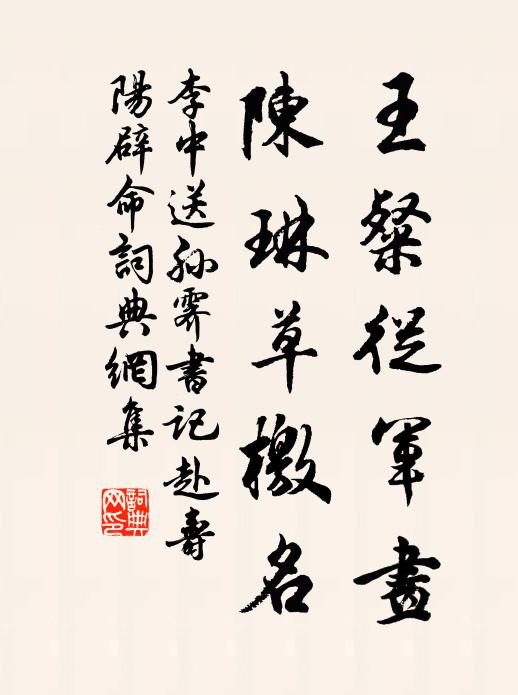 王粲從軍畫
陳琳草檄名
李中送孙霽書記赴壽
陽辟命詞典網集
詞典网印